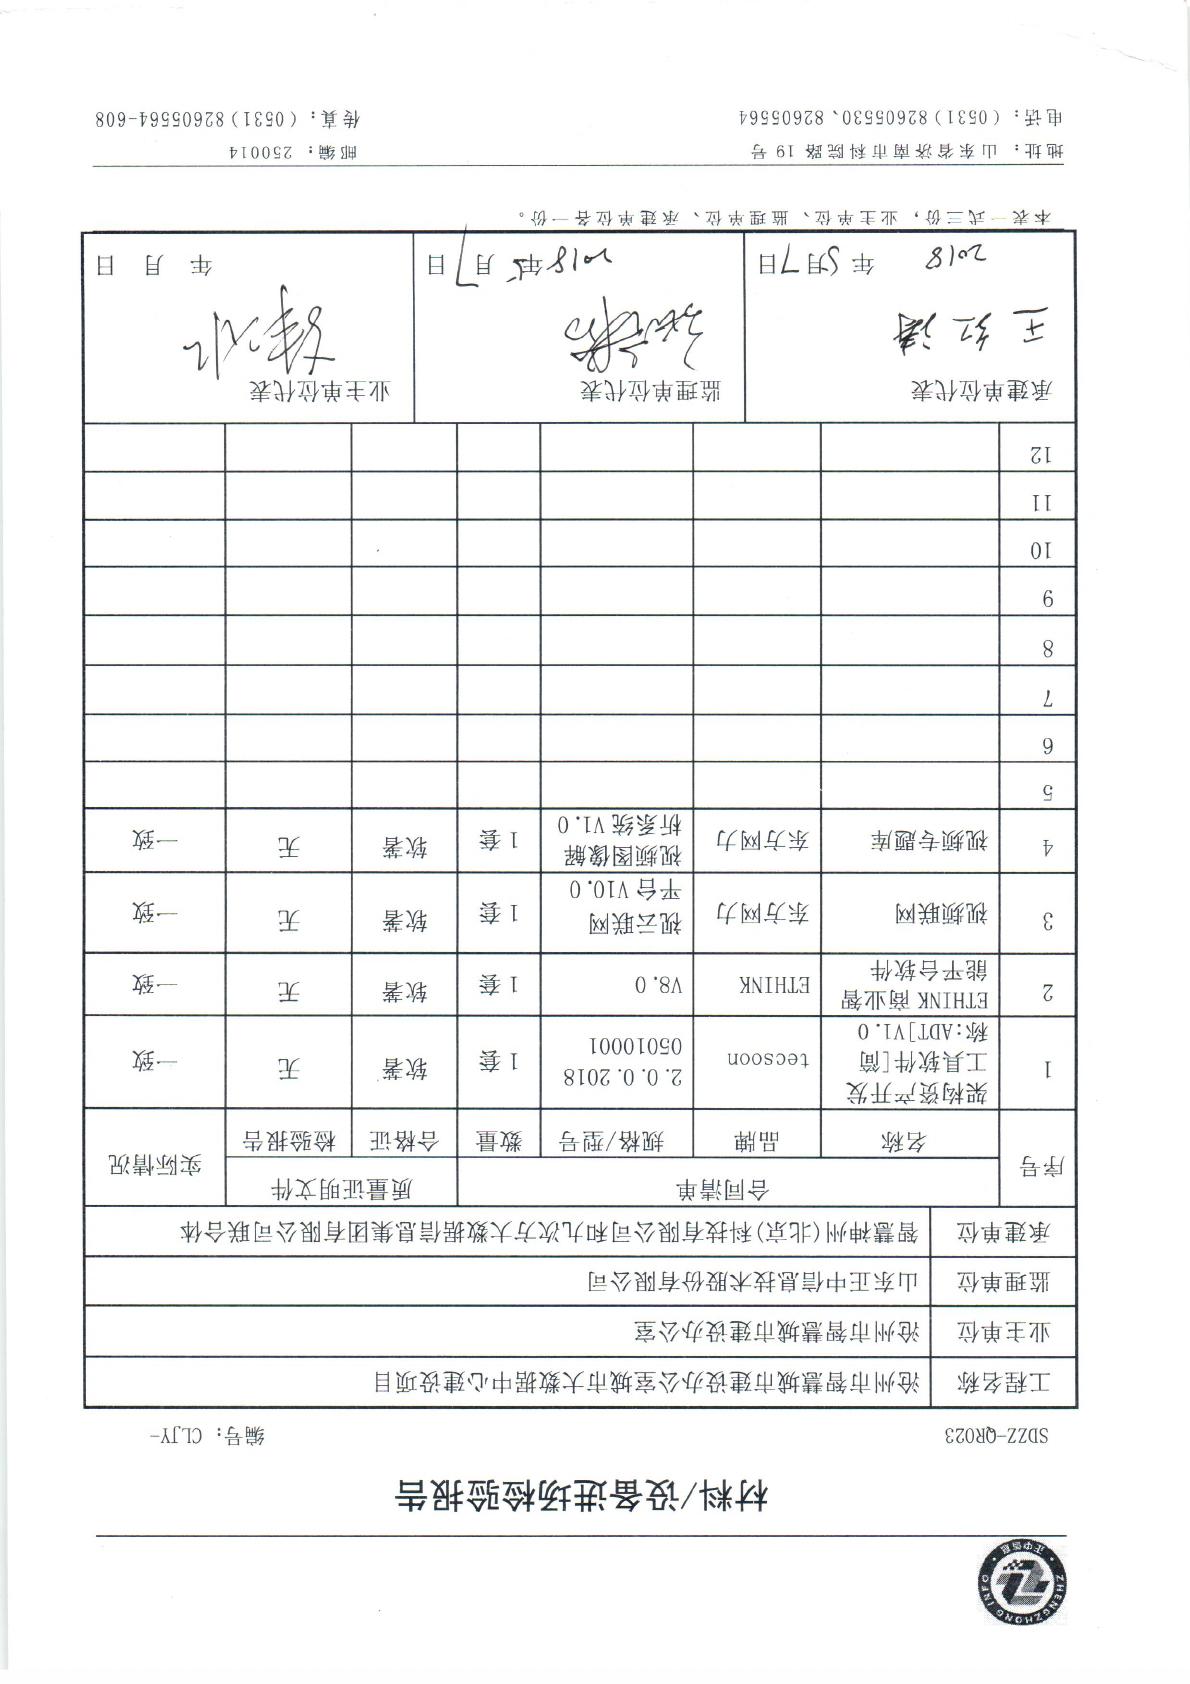 正中信息
ZHENGZHONG INFO
材料/设备进场检验报告
SDZZ-QR023 编号：CLJY-
工程名称 沧州市智慧城市建设办公室城市大数据中心建设项目
业主单位 沧州市智慧城市建设办公室
监理单位 山东正中信息技术股份有限公司
承建单位 智慧神州(北京)科技有限公司和九次方大数据信息集团有限公司联合体
序号 合同清单 质量证明文件 实际情况
名称 品牌 规格/型号 数量 合格证 检验报告
1 架构资产开发工具软件[简称:ADT]V1.0 tecsoon 2.0.0.201805010001 1 套 软著 无 一致
2 ETHINK 商业智能平台软件 ETHINK V8.0 1 套 软著 无 一致
3 视频联网 东方网力 视云联网平台 V10.0 1 套 软著 无 一致
4 视频专题库 东方网力 视频图像解析系统 V1.0 1 套 软著 无 一致
5
6
7
8
9
10
11
12
承建单位代表 监理单位代表 业主单位代表
王红涛
2018 年 5月 7日 2018年 5月 7日 年 月 日
本表一式三份，业主单位、监理单位、承建单位各一份。
地址：山东省济南市科院路 19 号 邮编：250014
电话：（0531）82605530、82605564 传真：（0531）82605564-608